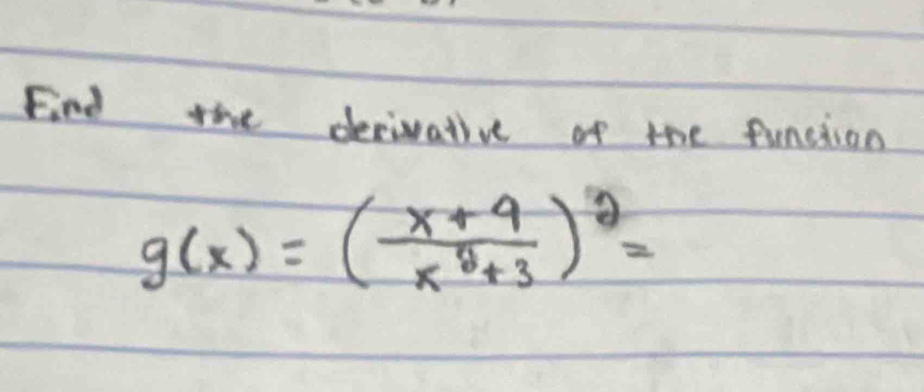 Find the derivative of the function
g(x) = (x + 9 / x² + 3)² =